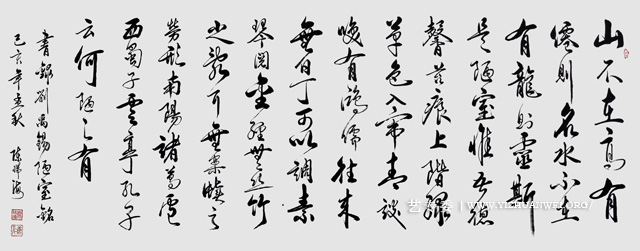 山不在高有
僊則名水不在
有龍則靈斯
是陋室惟吾德
馨苔痕上階綠
草色入簾青談
咲有鴻儒往來
無白丁可以調素
琴閱金經無絲竹
之亂耳無案牘之
勞形南陽諸葛廬
西蜀子雲亭孔子
云何陋之有
書錄劉禹錫陋室銘
己亥年立秋